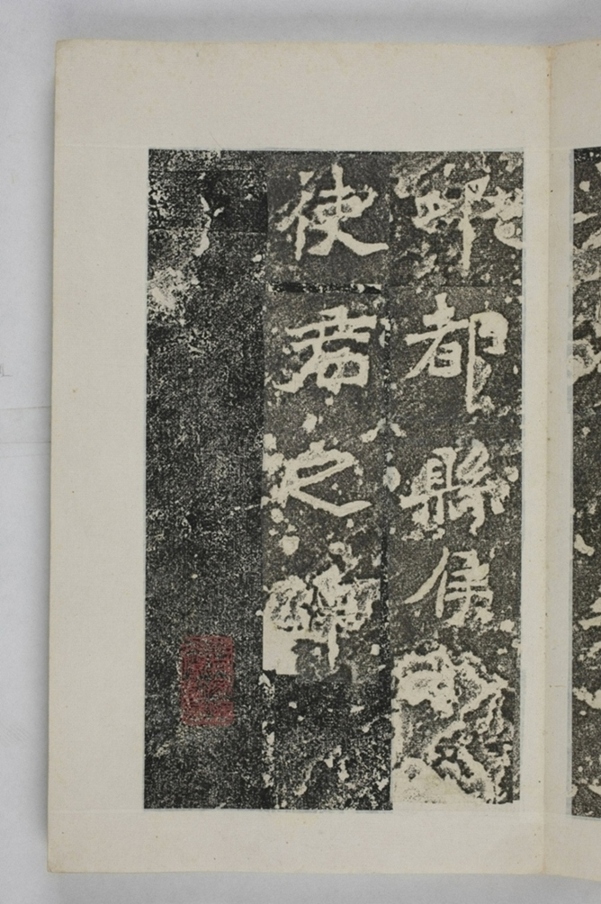 邛都縣侯
使君之碑